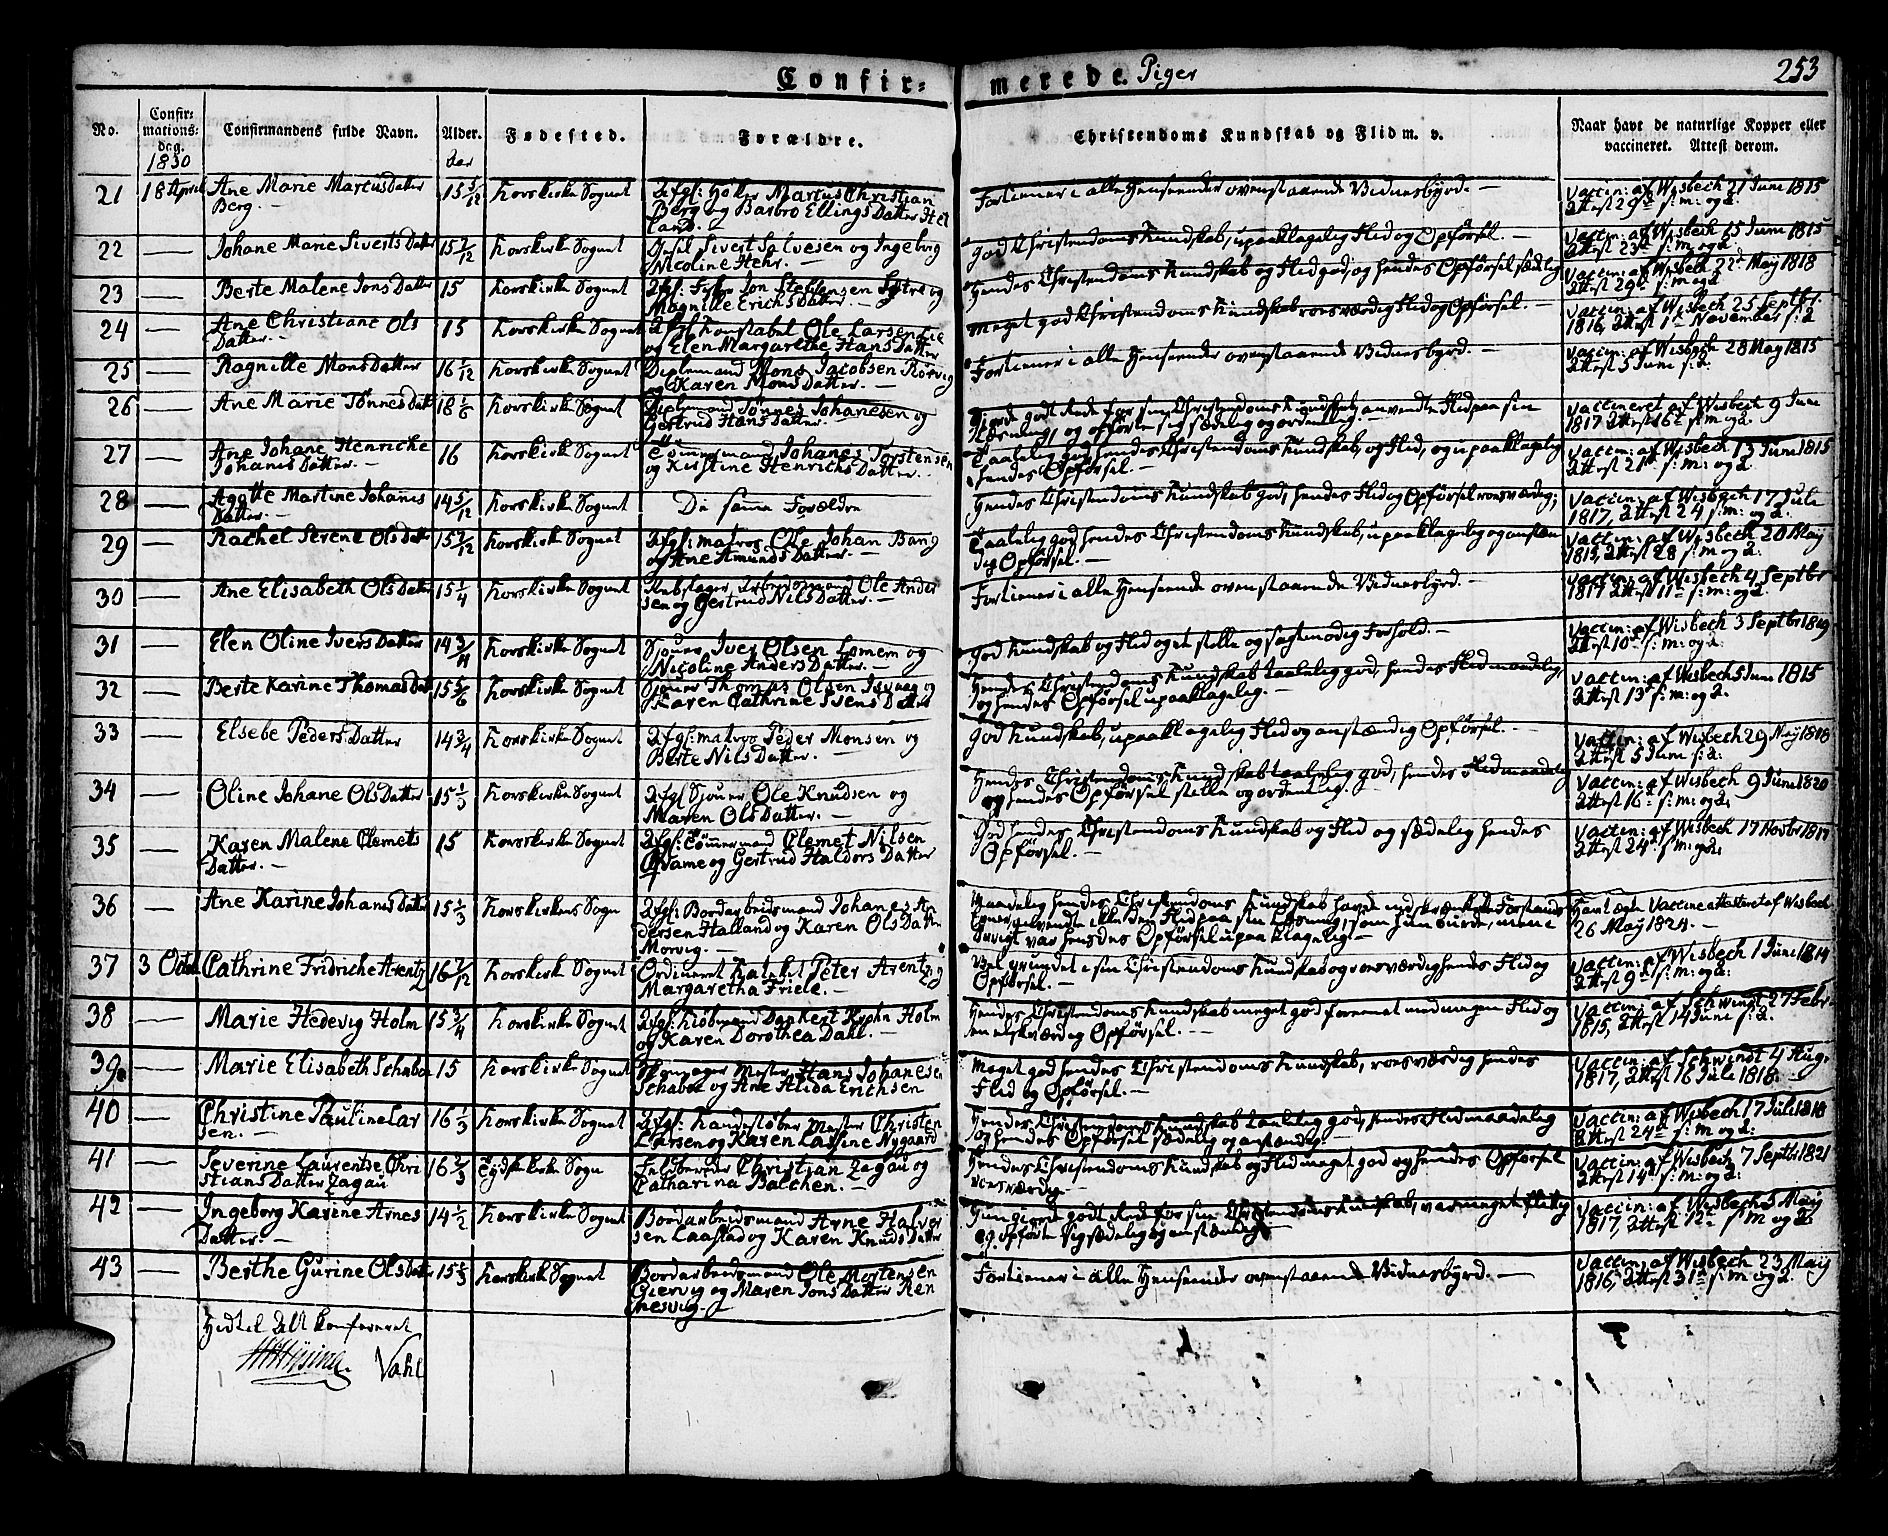 Confir- merede. Piger 253
No. Confirmations-dag. Confirmandens fulde Navn. Alder. Fødested. Forældre. Christendoms Kundskab og Flid m. v. Naar havt de naturlige Kopper eller vaccineret. Attest derom.
1830 Aar
21 18 April Ane Marie Martus Datter 15 5/12 Korskirke Sognet Afgl: Høker Martus Christian Fortiener i alle Henseender ovenstaaende Vidnesbyrd. — Vaccin: af Wisbech 21 Juni 1815
Berg. — Berg og Barbro Ellings Datter Hel Attest 29de s: m: og A.
land.
22 — Johane Marie Siverts Datter 15 7/12 Korskirke Sognet Sivert Salvesen og Ingeborg God Christendoms Kundskab, upaaklagelig Flid og Opførsel. — Vaccin: af Wisbech 15 Juni 1815
Nicoline Hehr. — Attest 23de s: m: og A.
23 — Berte Malene Jons Datter 15 Korskirke Sognet Afgl: Jon Steffensen og Hendes Christendoms Kundskab og Flid god, og hendes Opførsel sædelig Vaccin: af Wisbech 22de May 1818
Magnille Erichs Datter. — Attest 29de s: m og A
24 — Ane Christiane Ols 15 Korskirke Sognet Afgl Konstabel Ole Larsen Meget god Christendoms Kundskab roesværdig Flid og Opførsel. — Vaccin: af Wisbech 25 Septbr.
Datter. — og Elen Margarethe Hans Datter 1816, Attest 1te November s: A
25 — Ragnille Mons Datter 16 1/12 Korskirke Sognet Mons Jacobsen Rørvig Fortiener i alle Henseender ovenstaaende Vidnesbyrd. — Vaccin: af Wisbech 28 May 1815
og Karen Mons Datter. — Attest 5 Juni s: A.
26 — Ane Marie Tønnes Datt 18 1/6 Korskirke Sognet Tønnes Johanesen og Giorde godt Rede for sin Christendoms Kundskab, anvendte Flid paa sin Vaccineret af Wisbech 9 Juni
Gertrud Hans Datter. — og opførte sig sædelig og ordentlig. — 1817 Attest 16de s: m og A.
27 — Ane Johane Henriche 16 Korskirke Sognet Tømmermand Johanes Torstensen Taalelig god hendes Christendoms Kundskab, og Flid, og upaaklagelig Vaccin: af Wisbech 13 Juni 1815
Johanis Datter. — og Kirstine Henrichs Datter. — hendes Opførsel. — Attest 21de s: m: og A.
28 — Agathe Martine Johanis 14 5/12 Korskirke Sognet De samme Forældre Hendes Christendoms Kundskab god, hendes Flid og Opførsel roesværdig; Vaccin: af Wisbech 17 Juli
Datter. — 1817, Attest 24 s: m: og A.
29 — Rachel Serene Ols Datter 15 7/12 Korskirke Sognet Afgl: matros Ole Johan Bang Taalelig god hendes Christendoms Kundskab, upaaklagelig og anstæn Vaccin: af Wisbech 20 May
og Ane Amunds Datter. — dig Opførsel. — 1815 Attest 28 s: m og A.
30 — Ane Elisabeth Ols Datter 15 1/4 Korskirke Sognet Arbeidsmand Ole Ander Fortiener i alle Henseende ovenstaaende Vidnesbyrd. — Vaccin: af Wisbech 4 Septbr
sen og Gertrud Nils Datter. — 1817 Attest 11te s: m: og A.
31 — Elen Oline Ivers Datter 14 3/4 Korskirke Sognet Sjouer Iver Olsen Lomem og God Kundskab og Flid og et stille og sagtmodig Forhold. — Vaccin: af Wisbech 3 Septbr 1819
Nicoline Anders Datter. — Attest 10de s: m: og A.
32 — Berte Karine Thomas Datt 15 5/6 Korskirke Sognet Sjouer Thomas Olsen og Hendes Christendoms Kundskab taalelig god, hendes Flid maadelig, Vaccin: af Wisbech 5 Juni 1815
Karen Cathrine Ivens Datter og hendes Opførsel upaaklagelig. — Attest 13de s: m: og A.
33 — Elsebe Peders Datter 14 3/4 Korskirke Sognet Afgl: matros Peder Monsen og God Kundskab, upaaklagelig Flid og anstændig Opførsel. — Vaccin: af Wisbech 29 May 1818
Berte Nils Datter. — Attest 5 Juni s: A:
34 — Oline Johane Ols Datter 15 1/3 Korskirke Sognet Afgl Sjouer Ole Knudsen og Hendes Christendoms Kundskab taalelig god, hendes Flid maadelig Vaccin: af Wisbech 9 Juni 1820
Maren Ols Datter. — og hendes Opførsel stille og ordentlig. — Attest 16de s: m: og A.
35 — Karen Malene Clemets 15 Korskirke Sognet Afgl: Tømmermand Clemet Nilsen God hendes Christendoms Kundskab og Flid og sædelig hendes Vaccin: af Wisbech 17 Novbr 1817
Datter. — Qvame og Gertrud Haldors Datter Opførsel. — Attest 24de s: m: og A.
36 — Ane Karine Johanis Datter 15 1/3 Korskirkens Sogn Afgl: Bordarbeidsmand Johanes An Maadelig hendes Christendoms Kundskab havde indskrænkede Forstands Fremlagte Vaccine attesteret af Wisbech
dersen Halland og Karen Ols Datter evner, anvendte ikke den Flid paa sin Læsning, som hun burde, mene 26 May 1824. —
Morvig. — Øvrigt var hendes Opførsel upaaklagelig. —
37 3 Octob Cathrine Fridriche Arentz 16 7/12 Korskirke Sognet Ordineret Katechet Peter Arentz og Vel grundet i sin Christendoms Kundskab og roesværdig hendes Flid og Vaccin: af Wisbech 1 Juni 1814
Margaretha Friele. — Opførsel. — Attest 9de s: m: og A:
38 — Marie Hedevig Holm 15 3/4 Korskirke Sognet Afgl: Kiøbmand Dankert Krohn Holm Hendes Christendoms Kundskab meget god forenet med megen Flid og Vaccin: af Schwindt 27 Febr
og Karen Dorothea Dahl. — en elskværdig Opførsel. — 1815, Attest 14 Juni s: A.
39 — Marie Elisabeth Schabo 15 Korskirke Sognet Skomager Mester Hans Johanesen Meget god hendes Christendoms Kundskab, roesværdig hendes Vaccin: af Schwindt 4 Aug.
Schabo og Ane Alida Erichsen Flid og Opførsel. — 1817, Attest 16 Juli 1818. —
40 — Christine Pauline Lar 16 1/3 Korskirke Sognet Afgl: Kandestøber Mester Christen Hendes Christendoms Kundskab taalelig god, hendes Flid maadelig Vaccin: af Wisbech 17 Juli 1818
sen. — Larsen og Karen Lassine Nygaard og hendes Opførsel sædelig og anstændig. — Attest 24de s: m: og A:
41 — Severine Laurentse Chri 16 2/3 Tydskekirke Sogn Feldbereder Christian Zagau og Hendes Christendoms Kundskab og Flid meget god og hendes Opførsel Vaccin: af Wisbech 7 Septbr 1821
stians Datter Zagau Catharina Balchen. — roesværdig — Attest 14de s: m: og A:
42 — Ingeborg Karine Arnes 14 1/2 Korskirke Sognet Bordarbeidsmand Arne Halvor Hun giorde godt Rede for sin Christendoms Kundskab, var meget flittig Vaccin: af Wisbech 5 May
Datter. — sen Laastad og Karen Knuds Datter og opførte sig sædelig og anstændig 1817, Attest 12te s: m og A.
43 — Berthe Gurine Ols Datter 15 1/3 Korskirke Sognet Bordarbeidsmand Ole Mortensen Fortiener i alle Henseender ovenstaaende Vidnesbyrd. — Vaccin: af Wisbech 23 May
Giervig og Maren Jons Datter Ren 1816, Attest 31te s: m og A.
nesvig.
Hidtil Alt konfereret
Vahl